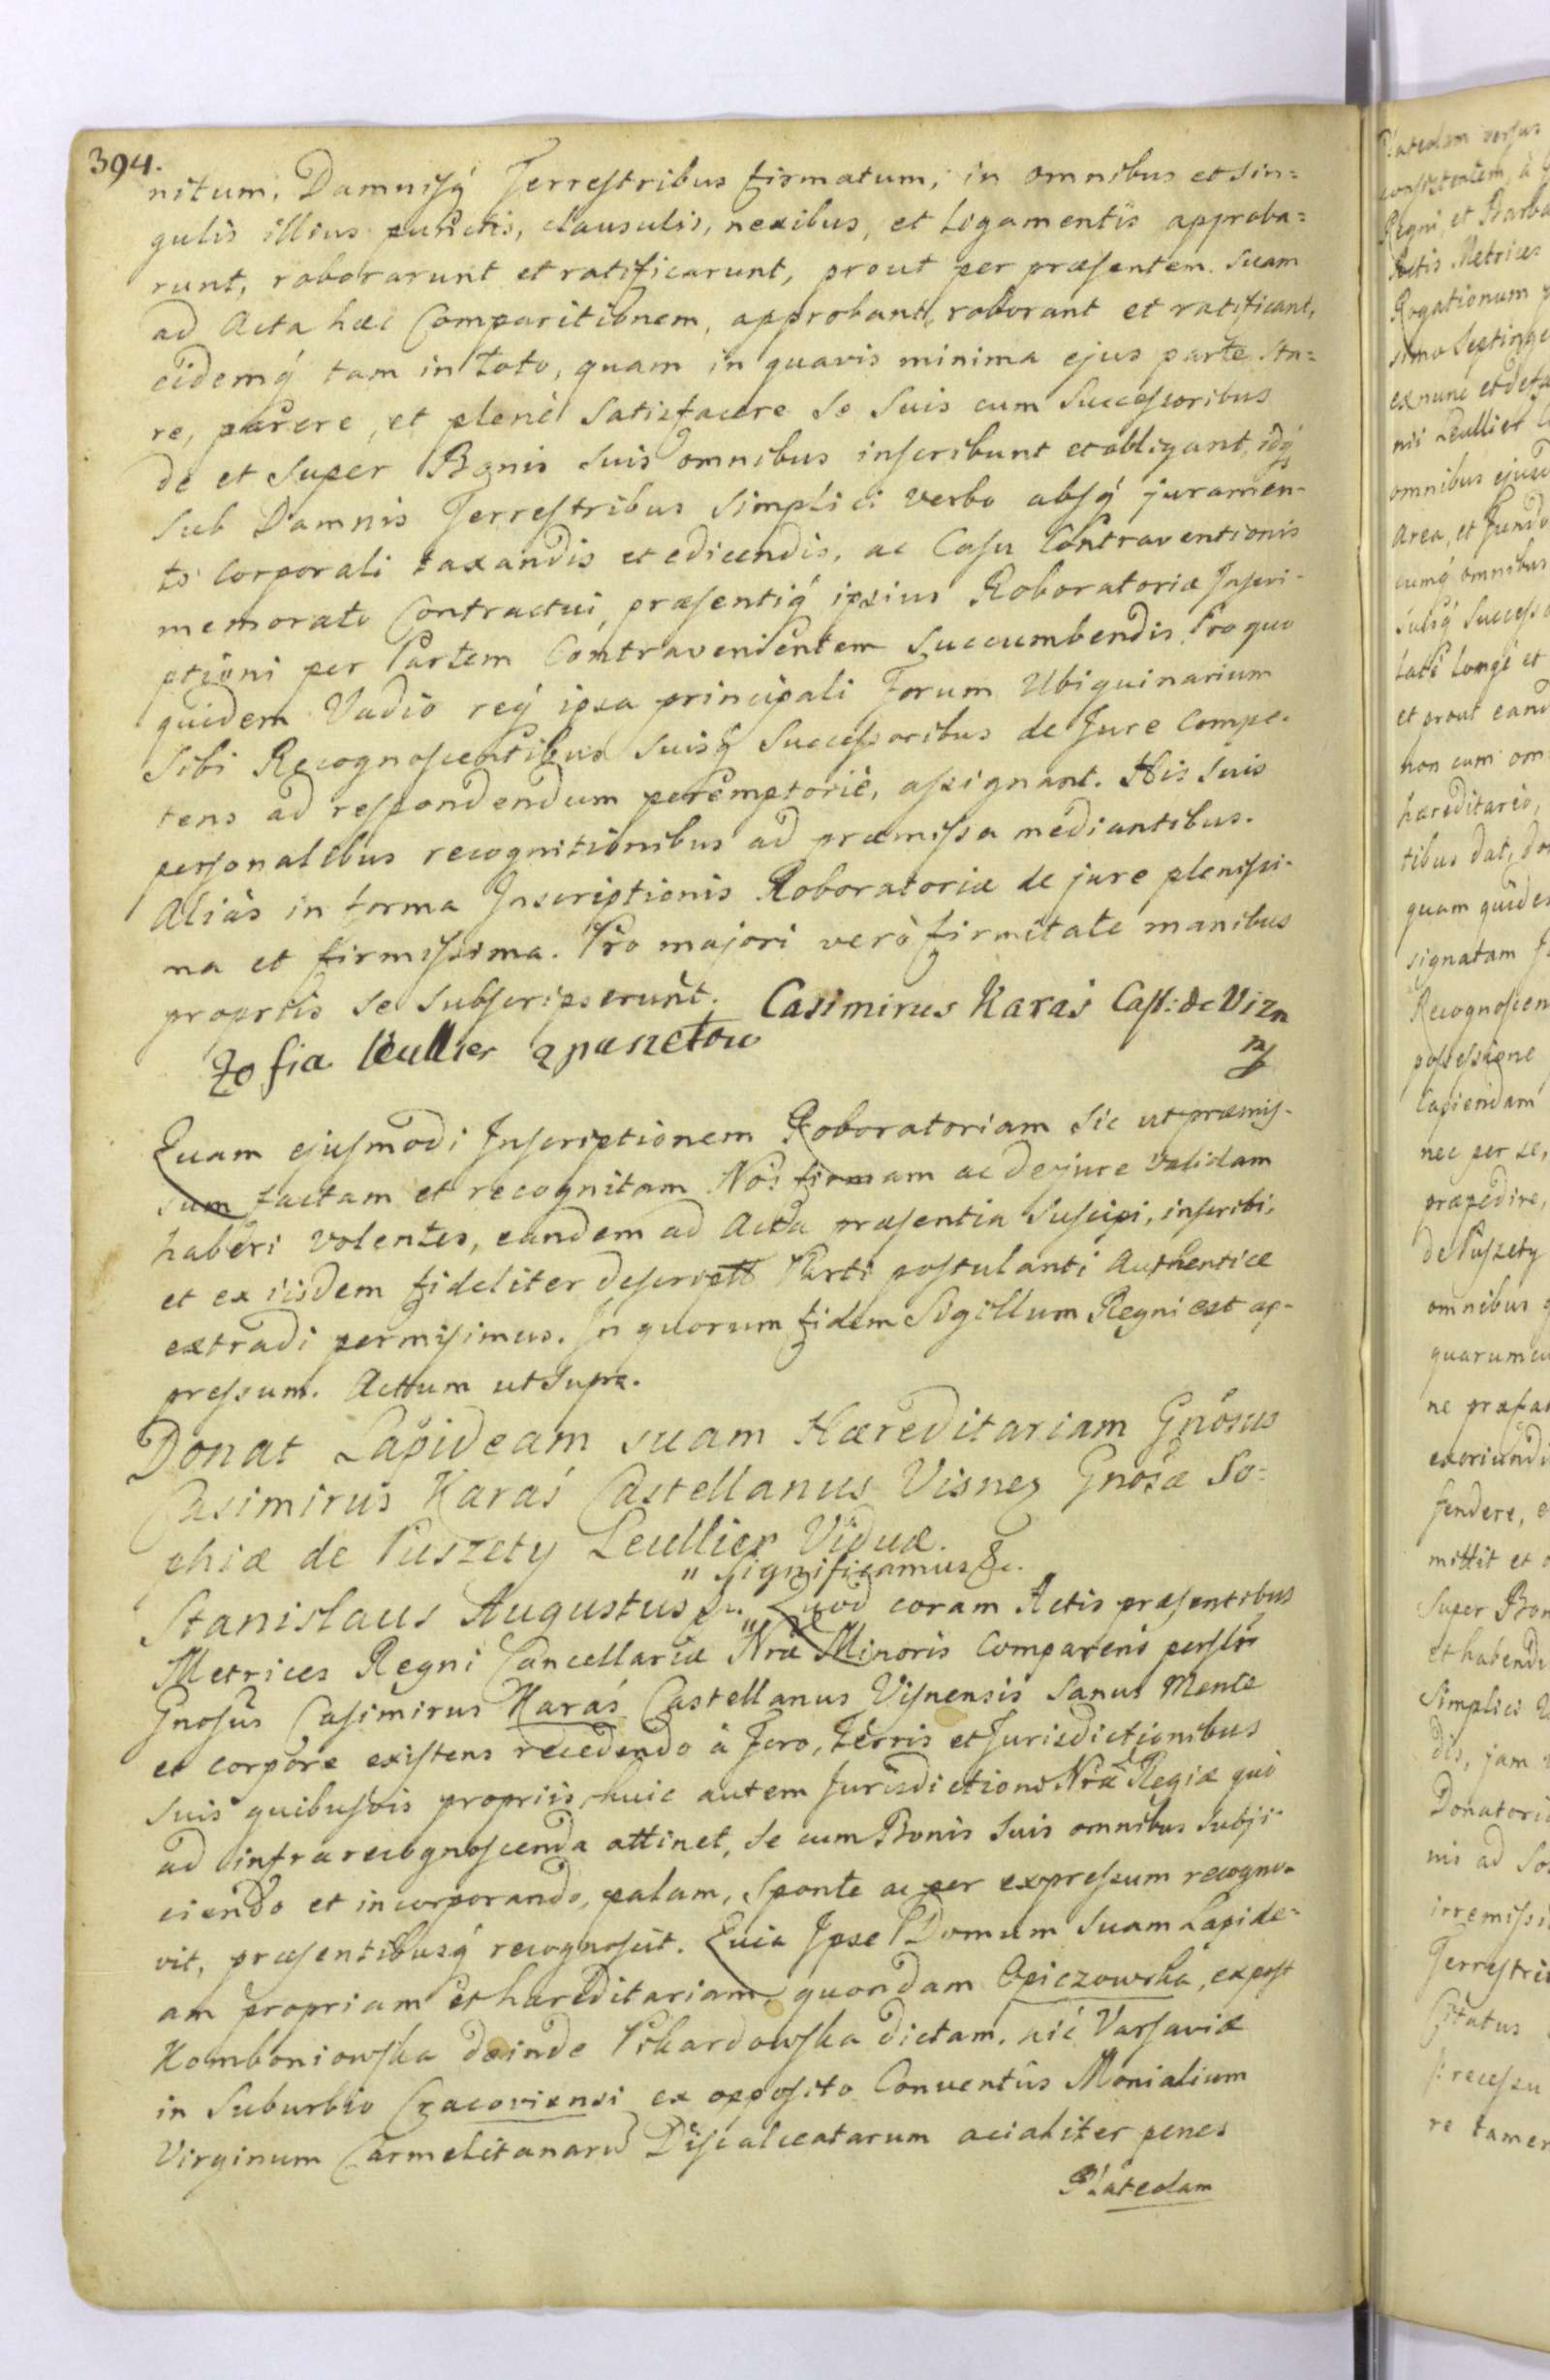 394.
nitum, Damnisq́ Terrestribus firmatum, in omnibus et sin=
gulis illius punctis, clausulis, nexibus, et Ligamentis approba=
runt, roborarunt et ratificarunt, prout per præsentem suam
ad Acta hæc Comparitionem, approbant, roborant et ratificant,
eidemq́ tam in toto, quam in quavis minima ejus parte sta=
re, parere, et plenè satisfacere se suis cum Successoribus
de et super Bonis suis omnibus inscribunt et obligant, idq́
sub Damnis Terrestribus simplici verbo absq́ juramen-
to corporali taxandis et edicendis, ac Casu Contraventionis
memorato Contractui, præsentiq́ ipsius Roboratoriæ Inscri-
ptioni per Partem Contravenientem succumbendis. Pro quo
quidem Vadio req́ ipsa principali Forum Ubiquinarium
sibi Recognoscentibus suisq́ Successoribus de Jure Compe-
tens ad respondendum peremptoriè, assignant. His suis
personalibus recognitionibus ad præmissa mediantibus.
Aliàs in forma Inscriptionis Roboratoriæ de jure plenissi-
ma et firmissima. Pro majori verò firmitate manibus
propriis se subscripserunt. Casimirus Karaś Cast: de Vizn
Zofia Leullier z puszetow mp
Quam ejusmodi Inscriptionem Roboratoriam sic ut præmis-
sum factam et recognitam Nos firmam ac de jure validam
haberi volentes, eandem ad Acta præsentia suscipi, inscribi,
et ex iisdem fideliter descriptã Parti postulanti Authentice
extradi permisimus. In quorum fidem Sigillum Regni est ap-
pressum. Actum ut supra.
Donat Lapideam suam Hæreditariam Gnosus
Casimirus Karaś Castellanus Visnen Gnosæ So=
phiæ de Puszety Leullier Viduæ.
" Significamus &c.
Stanislaus Augustus &c. " Quod coram Actis præsentibus
Metrices Regni Cancellariæ Nræ Minoris Comparens persltr
Gnosus Casimirus Karaś Castellanus Visnensis sanus Mente
et corpore existens recedendo à Foro, Terris et Jurisdictionibus
suis quibusvis propriis, huic autem Jurisdictioni Nræ Regiæ quò
ad infrarecognoscenda attinet, se cum Bonis suis omnibus subji-
ciendo et incorporando, palam, sponte ac per expressum recogno-
vit, præsentibusq́ recognoscit. Quia Ipse Domum suam Lapide=
am propriam et hæreditariam, quondam Opiczowska, expost
Komboniowska deinde Pikardowska dictam, hic Varsaviæ
in Suburbio Cracoviensi ex opposito Conventûs Monialium
Virginum Carmelitanarũ Discalceatarum acialiter penes
Plateolam
Plateolam versus
consistentem, à
Regni, et Barba
Actis Metrices
Rogationum
simo Septinge
exnunc et de
nii Leullier
omnibus ejus
Area, et Fundo
cumq́ omnibus
suisq́ Successo
latè longè et
et prout eand
non cum om
hæreditario,
tibus dat, do
quam quidem
signatam
Recognoscen
possessione
Capiendam
nec per se,
præpedire,
de Puszety
omnibus
quarumcu
ne præfa
exoriundi
fendere,
mittit et
super Bon
et habendi
simplici
dis, jam
Donatori
nis ad So
irremissi
Terrestri
Citatus
processu
re tamen